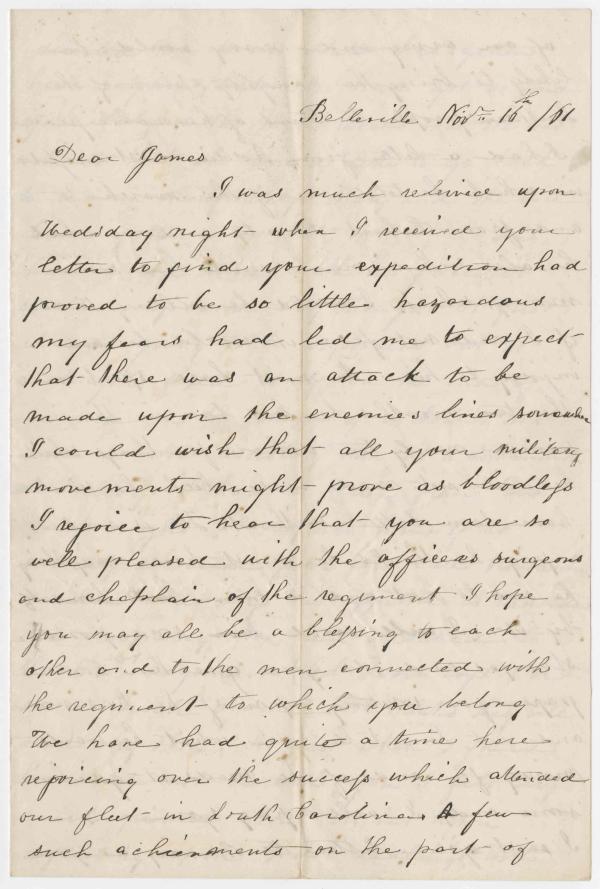 Belleville Novr. 16th /61
Dear James
I was much releived upon
Wedsday night when I received your
letter to find your expedition had
proved to be so little hazardous
my fears had led me to expect
that there was an attack to be
made upon the enemies lines somewhere
I could wish that all your military
movements might prove as bloodless
I rejoice to hear that you are so
well pleased with the officers surgeons
and chaplain of the regiment I hope
you may all be a blessing to each
other and to the men connected with
the regiment to which you belong
We have had quite a time here
rejoicing over the success which attended
our fleet in South Carolina A few
such achievements on the part of